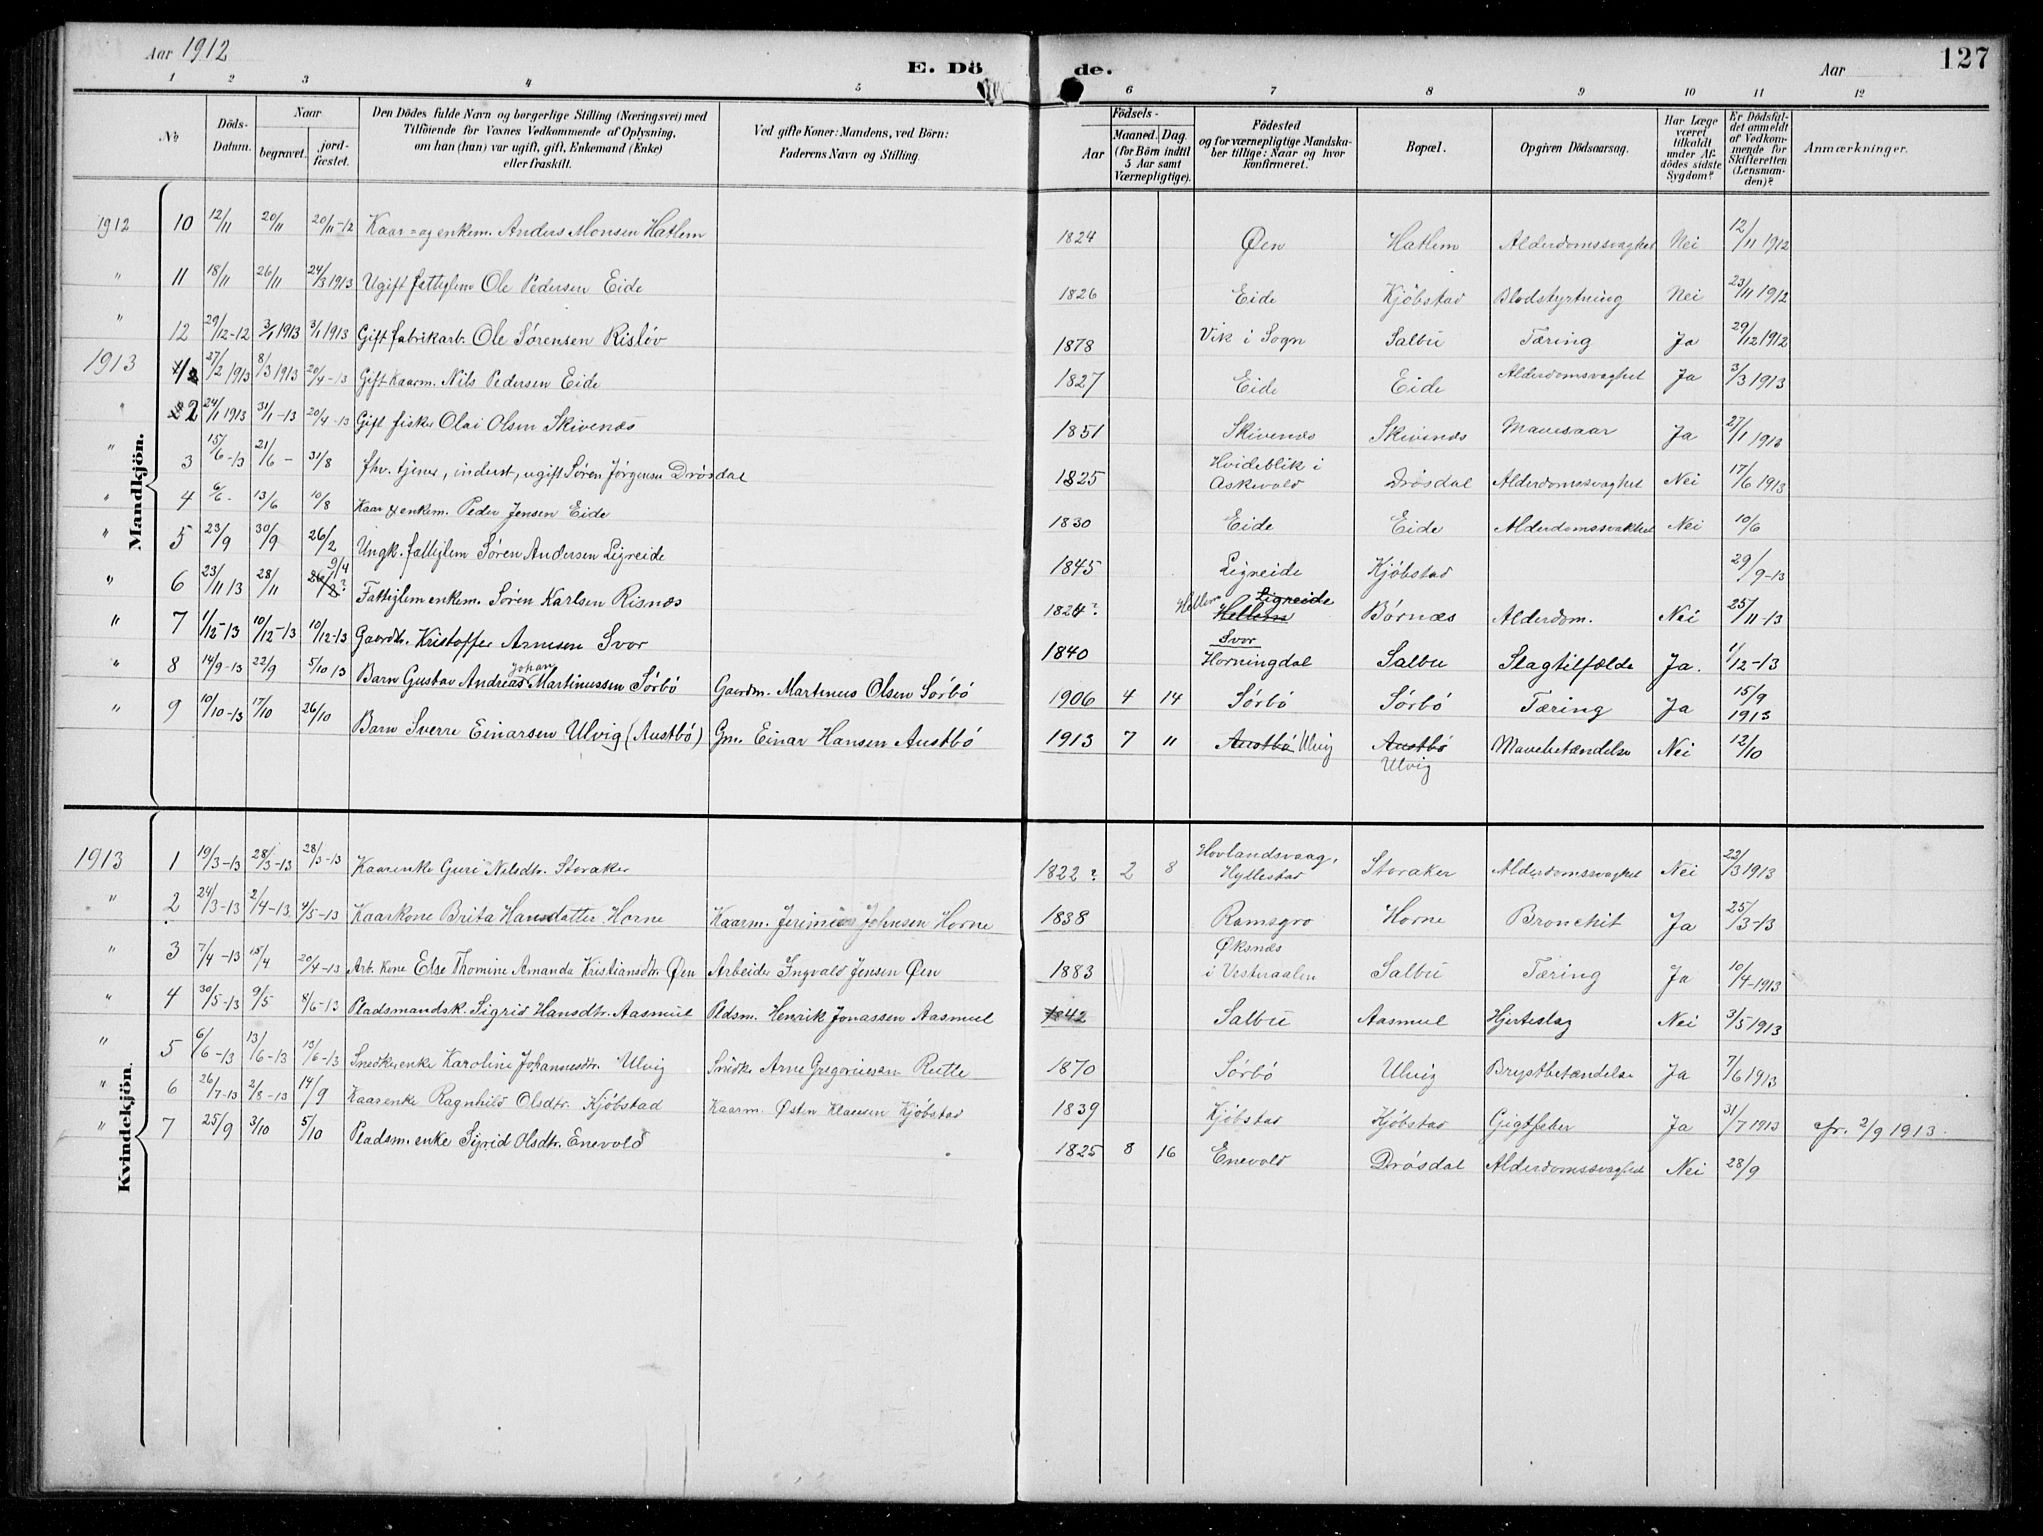 Aar 1912
E. Döde.
Aar
127
1 2 3 4 5 6 7 8 9 10 11 12
No
Döds-Datum.
Naar
begravet.
jord-fæstet.
Den Dödes fulde Navn og borgerlige Stilling (Næringsvei) med
Tilföiende for Voxnes Vedkommende af Oplysning,
om han (hun) var ugift, gift, Enkemand (Enke)
eller fraskilt.
Ved gifte Koner: Mandens, ved Börn:
Faderens Navn og Stilling.
Födsels-
Aar
Maaned. Dag.
(for Börn indtil
5 Aar samt
Værnepligtige).
Födested
og for værnepligtige Mandska-
ber tillige: Naar og hvor
konfirmeret.
Bopæl.
Opgiven Dödsaarsag.
Har Læge
været
tilkaldt
under Af-
dödes sidste
Sygdom?
Er Dödsfal-
det anmeldt
af Vedkom-
mende for
Skifteretten
(Lensman-
den)?
Anmærkninger.
Mandkjön.
1912 10 12/11 20/11 20/11-12 Kaar- og enkem. Anders Monsen Hatlem 1824 Øen Hatlem Alderdomssvaghet Nei 12/11 1912
" 11 18/11 26/11 24/3 1913 Ugift fattiglem Ole Pedersen Eide 1826 Eide Kjøbstad Blodstyrtning Nei 23/11 1912
" 12 29/12-12 3/1 1913 3/1 1913 Gift fabrikarb. Ole Sørensen Risløv 1878 Vik i Sogn Salbu Tæring Ja 29/12 1912
1913 1 27/2 1913 8/3 1913 20/4-13 Gift Kaarm. Nils Pedersen Eide 1827 Eide Eide Alderdomsvaghet Ja 3/3 1913
" 2 24/1 1913 31/1-13 20/4-13 Gift fisker Olai Olsen Skivenæs 1851 Skivenæs Skivenæs Mavesaar Ja 27/1 1913
" 3 15/6-13 21/6- 31/8 fhv. tjener, inderst, ugift Søren Jørgensen Drøsdal 1825 Hvideblik i Askevold Drøsdal Alderdomssvaghet Nei 17/6 1913
" 4 6/6- 13/6 10/8 Kaar & enkem. Peder Jensen Eide 1830 Eide Eide Alderdomssvakhet Nei 10/6
" 5 23/9 30/9 26/2 Ungk. fattiglem Søren Andersen Ligreide 1845 Ligreide Kjøbstad 29/9-13
" 6 23/11 13 28/11 9/4 Fattiglem enkem. Søren Karlsen Risnæs 1824? Hellem Ligreide Hellem Børnæs Alderdom. Nei 25/11-13
" 7 1/12-13 10/12-13 10/12-13 Gaardbr. Kristoffer Arnesen Svor 1840 Svor Horningdal Salbu Slagtilfælde Ja. 1/12-13
" 8 14/9-13 22/9 5/10 13 Barn Gustav Andreas Johan Martinussen Sørbø Gaardm. Martinus Olsen Sørbø 1906 4 14 Sørbø Sørbø Tæring Ja 15/9 1913
" 9 10/10-13 17/10 26/10 Barn Sverre Einarsen Ulvig (Austbø) Gm. Einar Hansen Austbø 1913 7 11 Austbø Ulvig Austbø Ulvig Mavebetændelse Nei 12/10
Kvindekjön.
1913 1 19/3-13 28/3-13 28/3-13 Kaarenke Guri Nilsdtr. Storaker 1822? 2 8 Hovlandsvaag, Hyllestad Storaker Alderdomssvaghet Nei 22/3 1913
" 2 24/3-13 2/4-13 4/5-13 Kaarkone Brita Hansdatter Horne Kaarm. Jeremias Johnsen Horne 1838 Ramsgro Horne Bronchit Ja 25/3-13
" 3 7/4-13 15/4 20/4-13 Arb. kone Else Thomine Amanda Kristiansdtr. Øen Arbeider Ingvald Jensen Øen 1883 Øksnæs i Vesteraalen Salbu Tæring Ja 10/4-1913
" 4 30/5-13 9/5 8/6-13 Pladsmandsk. Sigrid Hansdtr. Aasmul Pldsm. Henrik Jonassen Aasmul 1842 Salbu Aasmul Hjerteslag Nei 3/5 1913
" 5 6/6-13 13/6-13 13/6-13 Snedkerenke Karoline Johannesdtr. Ulvig Snedker Arne Gregoriussen Rutle 1870 Sørbø Ulvig Brystbetændelse Ja 7/6 1913
" 6 26/7-13 2/8-13 14/9 Kaarenke Ragnhild Olsdtr. Kjøbstad Kaarm. Østen Klausen Kjøbstad 1839 Kjøbstad Kjøbstad Gigtfeber Ja 31/7 1913 cfr. 2/9 1913.
" 7 25/9 3/10 5/10 Pladsm. enke Sigrid Olsdtr. Enevold 1825 8 16 Enevold Drøsdal Alderdomssvaghet Nei 28/9